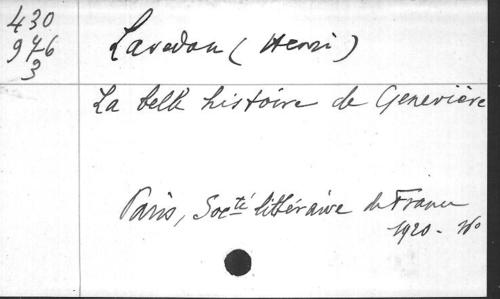 430
976
3
Lavedan (Henri)
La belle histoire de Geneviève
Paris, Socté littéraire de France
1920 - 16o